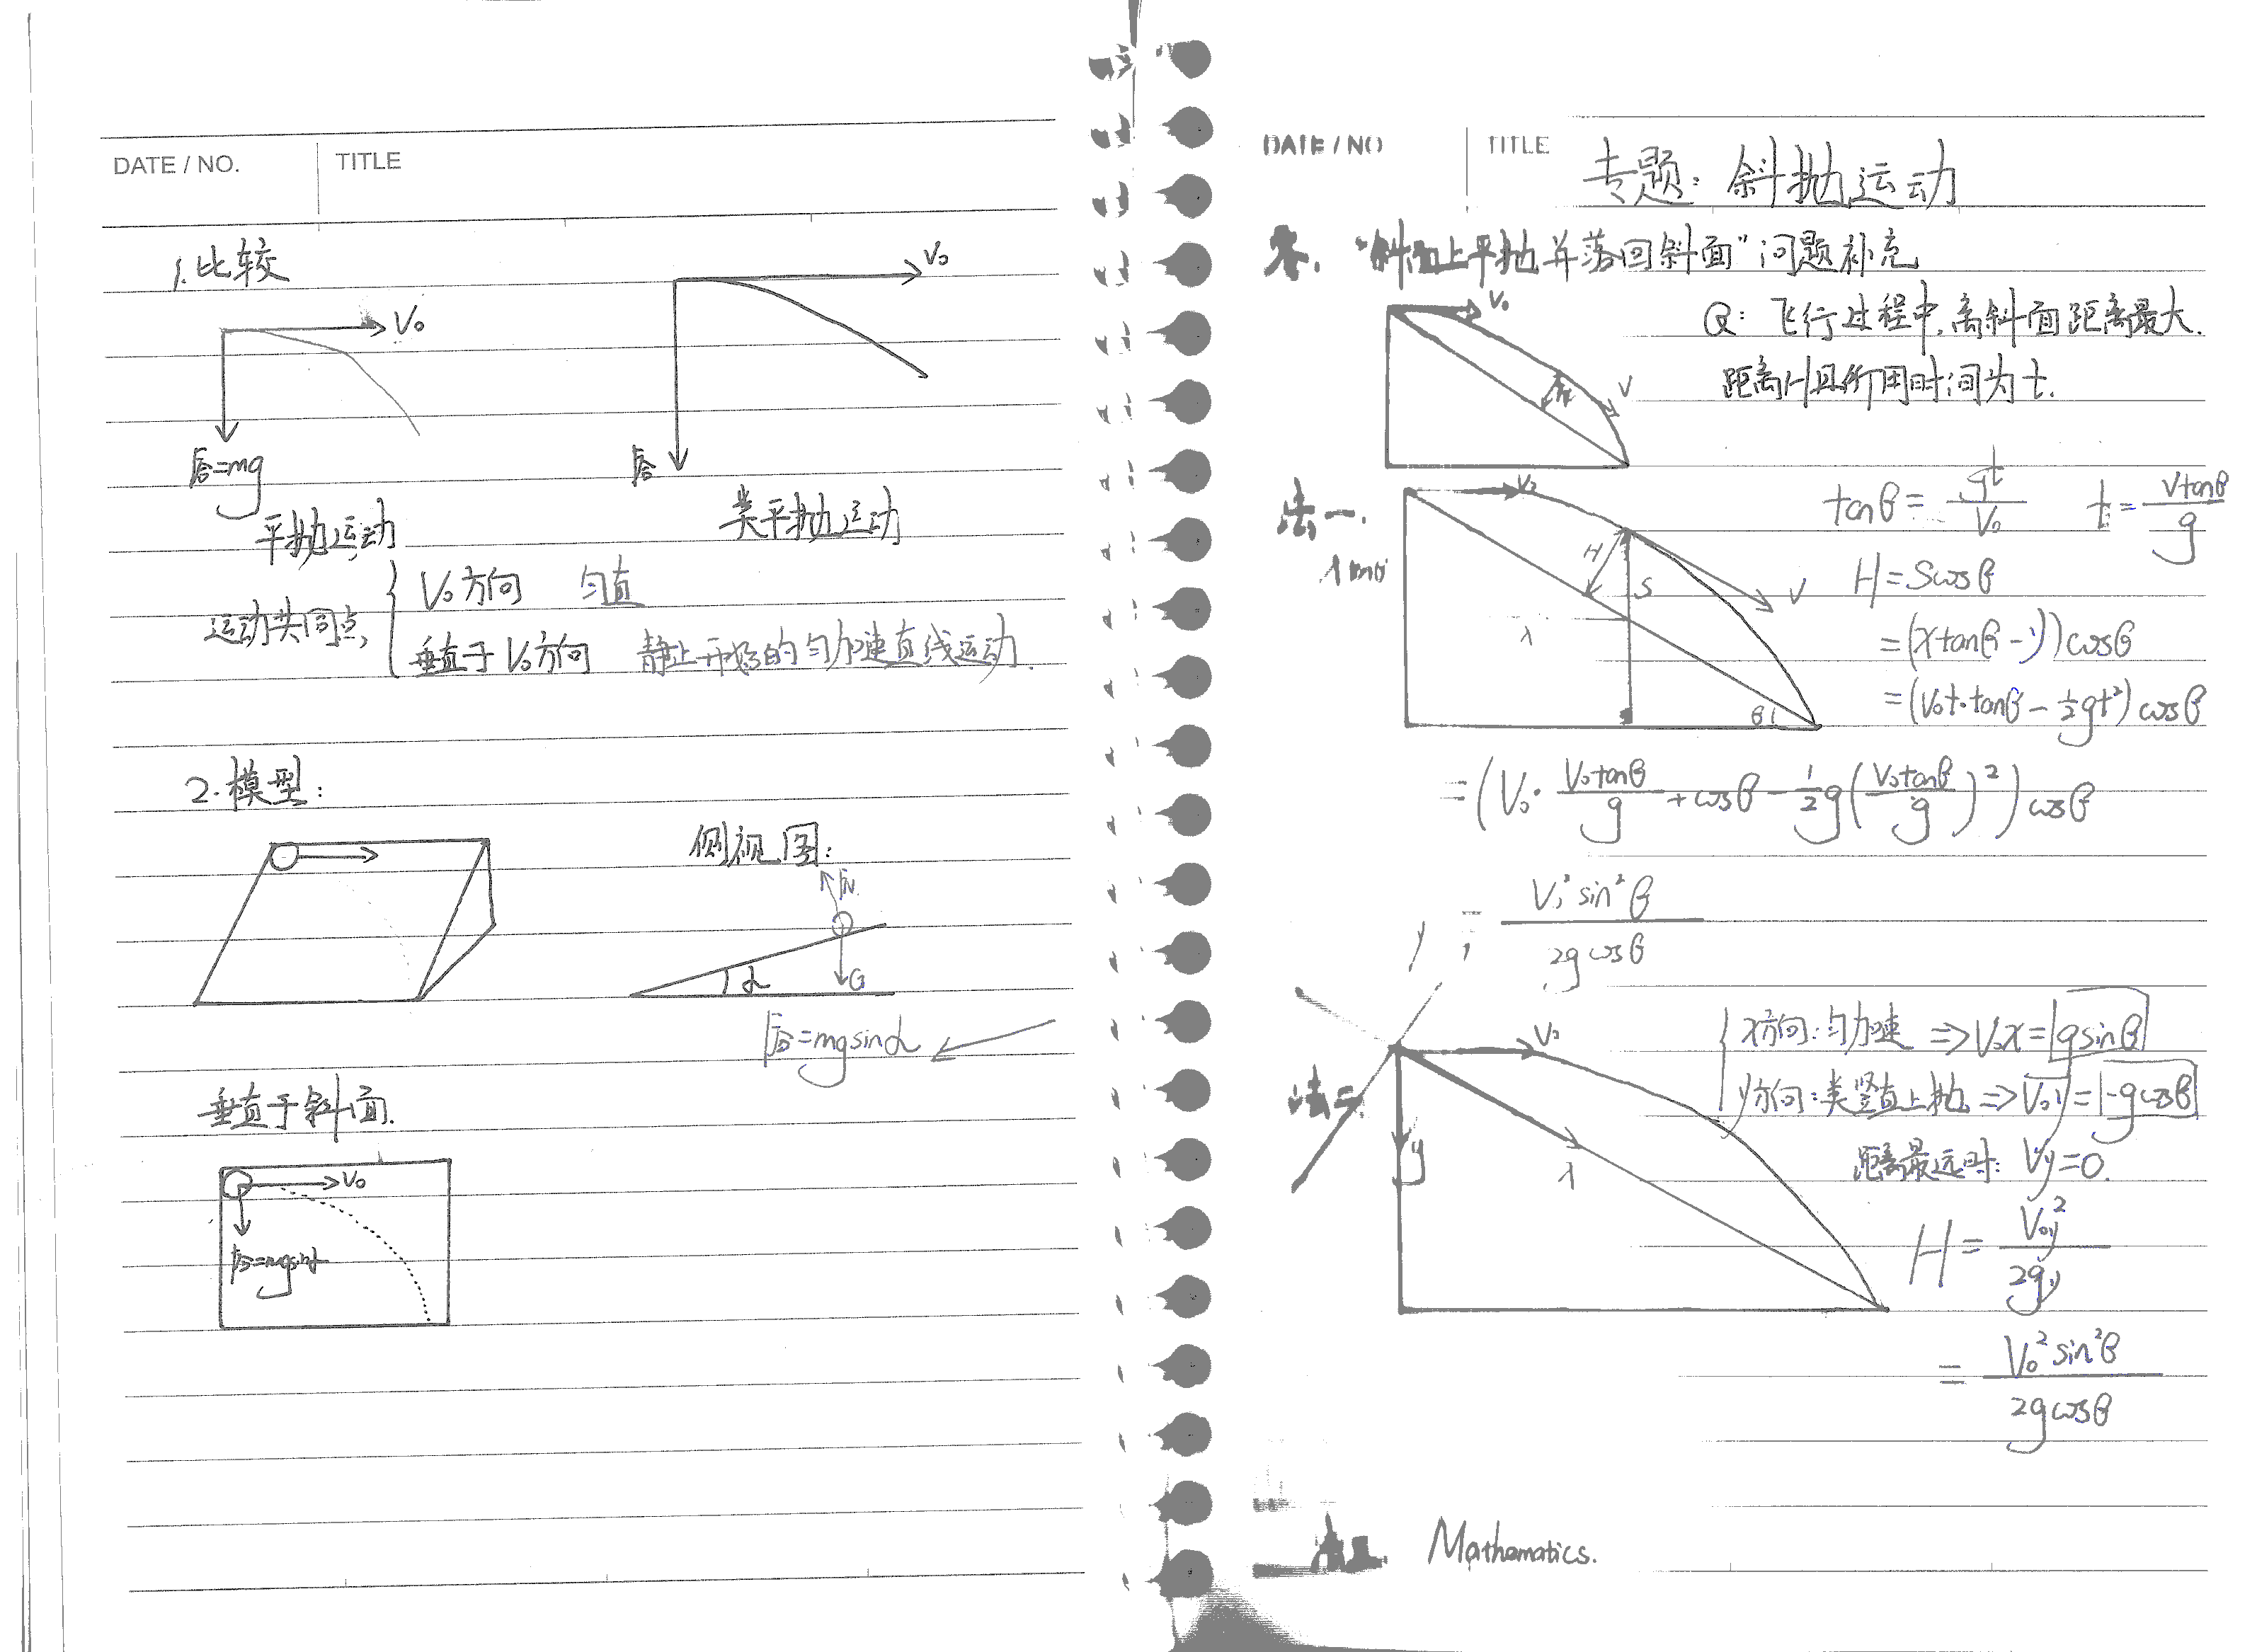 DATE / NO. TITLE
1.比较
V₀
V₀
F合=mg
F合
平抛运动
类平抛运动
运动共同点
V₀方向 匀直
垂直于V₀方向 静止开始的匀加速直线运动.
2.模型:
侧视图:
FN
α
G
F合=mgsinα
垂直于斜面.
V₀
F合=mgsinα
DATE / NO TITLE 专题: 斜抛运动
零. "斜面上平抛并落回斜面"问题补充
V₀
Q: 飞行过程中,离斜面距离最大.
距离H且所用时间为t.
H
V
法一.
V₀
tanθ = gt/V₀ t = Vtanθ/g
H
S
V
x
θ
H=Scosθ
=(xtanθ-y)cosθ
=(V₀t·tanθ-½gt²)cosθ
=(V₀·V₀tanθ/g+cosθ-½g(V₀tanθ/g)²)cosθ
= V₀²sin²θ/2gcosθ
y
法二.
V₀
y
x
x方向:匀加速 ⇒V₀x=gsinθ
y方向:类竖直上抛 ⇒V₀y=-gcosθ
距离最远时: Vy=0.
H= V₀y²/2gy
= V₀²sin²θ/2gcosθ
Mathematics.